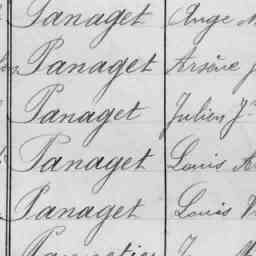 Panaget Ange
Panaget Arsène
Panaget Julien J
Panaget Louis A
Panaget Louis